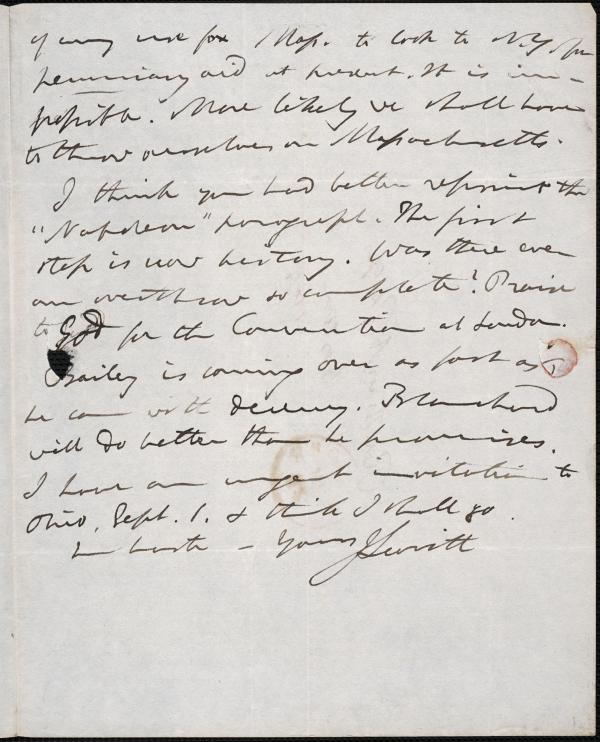 of any use for Mass. to look to N.Y. for
pecuniary aid at present. It is im-
possible. More likely we shall have
to throw ourselves on Massachusetts.
I think you had better reprint the
"Napoleon" paragraph. The first
step is now history. Was there ever
an overthrow so complete? Praise
to God for the Convention at London.
Bailey is coming over as fast as
he can with decency. Blanchard
will do better than he promises.
I have an urgent invitation to
Ohio, Sept. 1. & think I shall go.
In haste – Yours J Leavitt